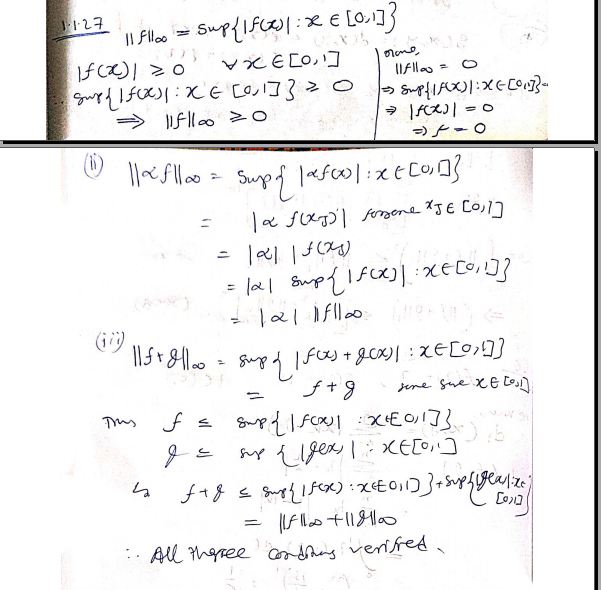 1.1.27
||f||∞ = Sup{|f(x)| : x ∈ [0,1]}
|f(x)| ≥ 0 ∀ x ∈ [0,1]
Sup{|f(x)| : x ∈ [0,1]} ≥ 0
⟹ ||f||∞ ≥ 0
||f||∞ = 0
⇒ Sup{|f(x)| : x ∈ [0,1]} =
⇒ |f(x)| = 0
⇒ f = 0
(ii) ||αf||∞ = Sup{ |αf(x)| : x ∈ [0,1]}
= |α f(x_J)| for some x_J ∈ [0,1]
= |α| |f(x_J)|
= |α| Sup{ |f(x)| : x ∈ [0,1]}
= |α| ||f||∞
(iii) ||f+g||∞ = Sup{ |f(x) + g(x)| : x ∈ [0,1]}
= f + g some x ∈ [0,1]
Thus f ≤ Sup{ |f(x)| : x ∈ 0,1]}
g ≤ Sup { |g(x)| : x ∈ [0,1]
↳ f+g ≤ Sup{ |f(x) : x ∈ 0,1]} + Sup{|g(x)| : x ∈ [0,1]}
= ||f||∞ + ||g||∞
∴ All three conditions verified.